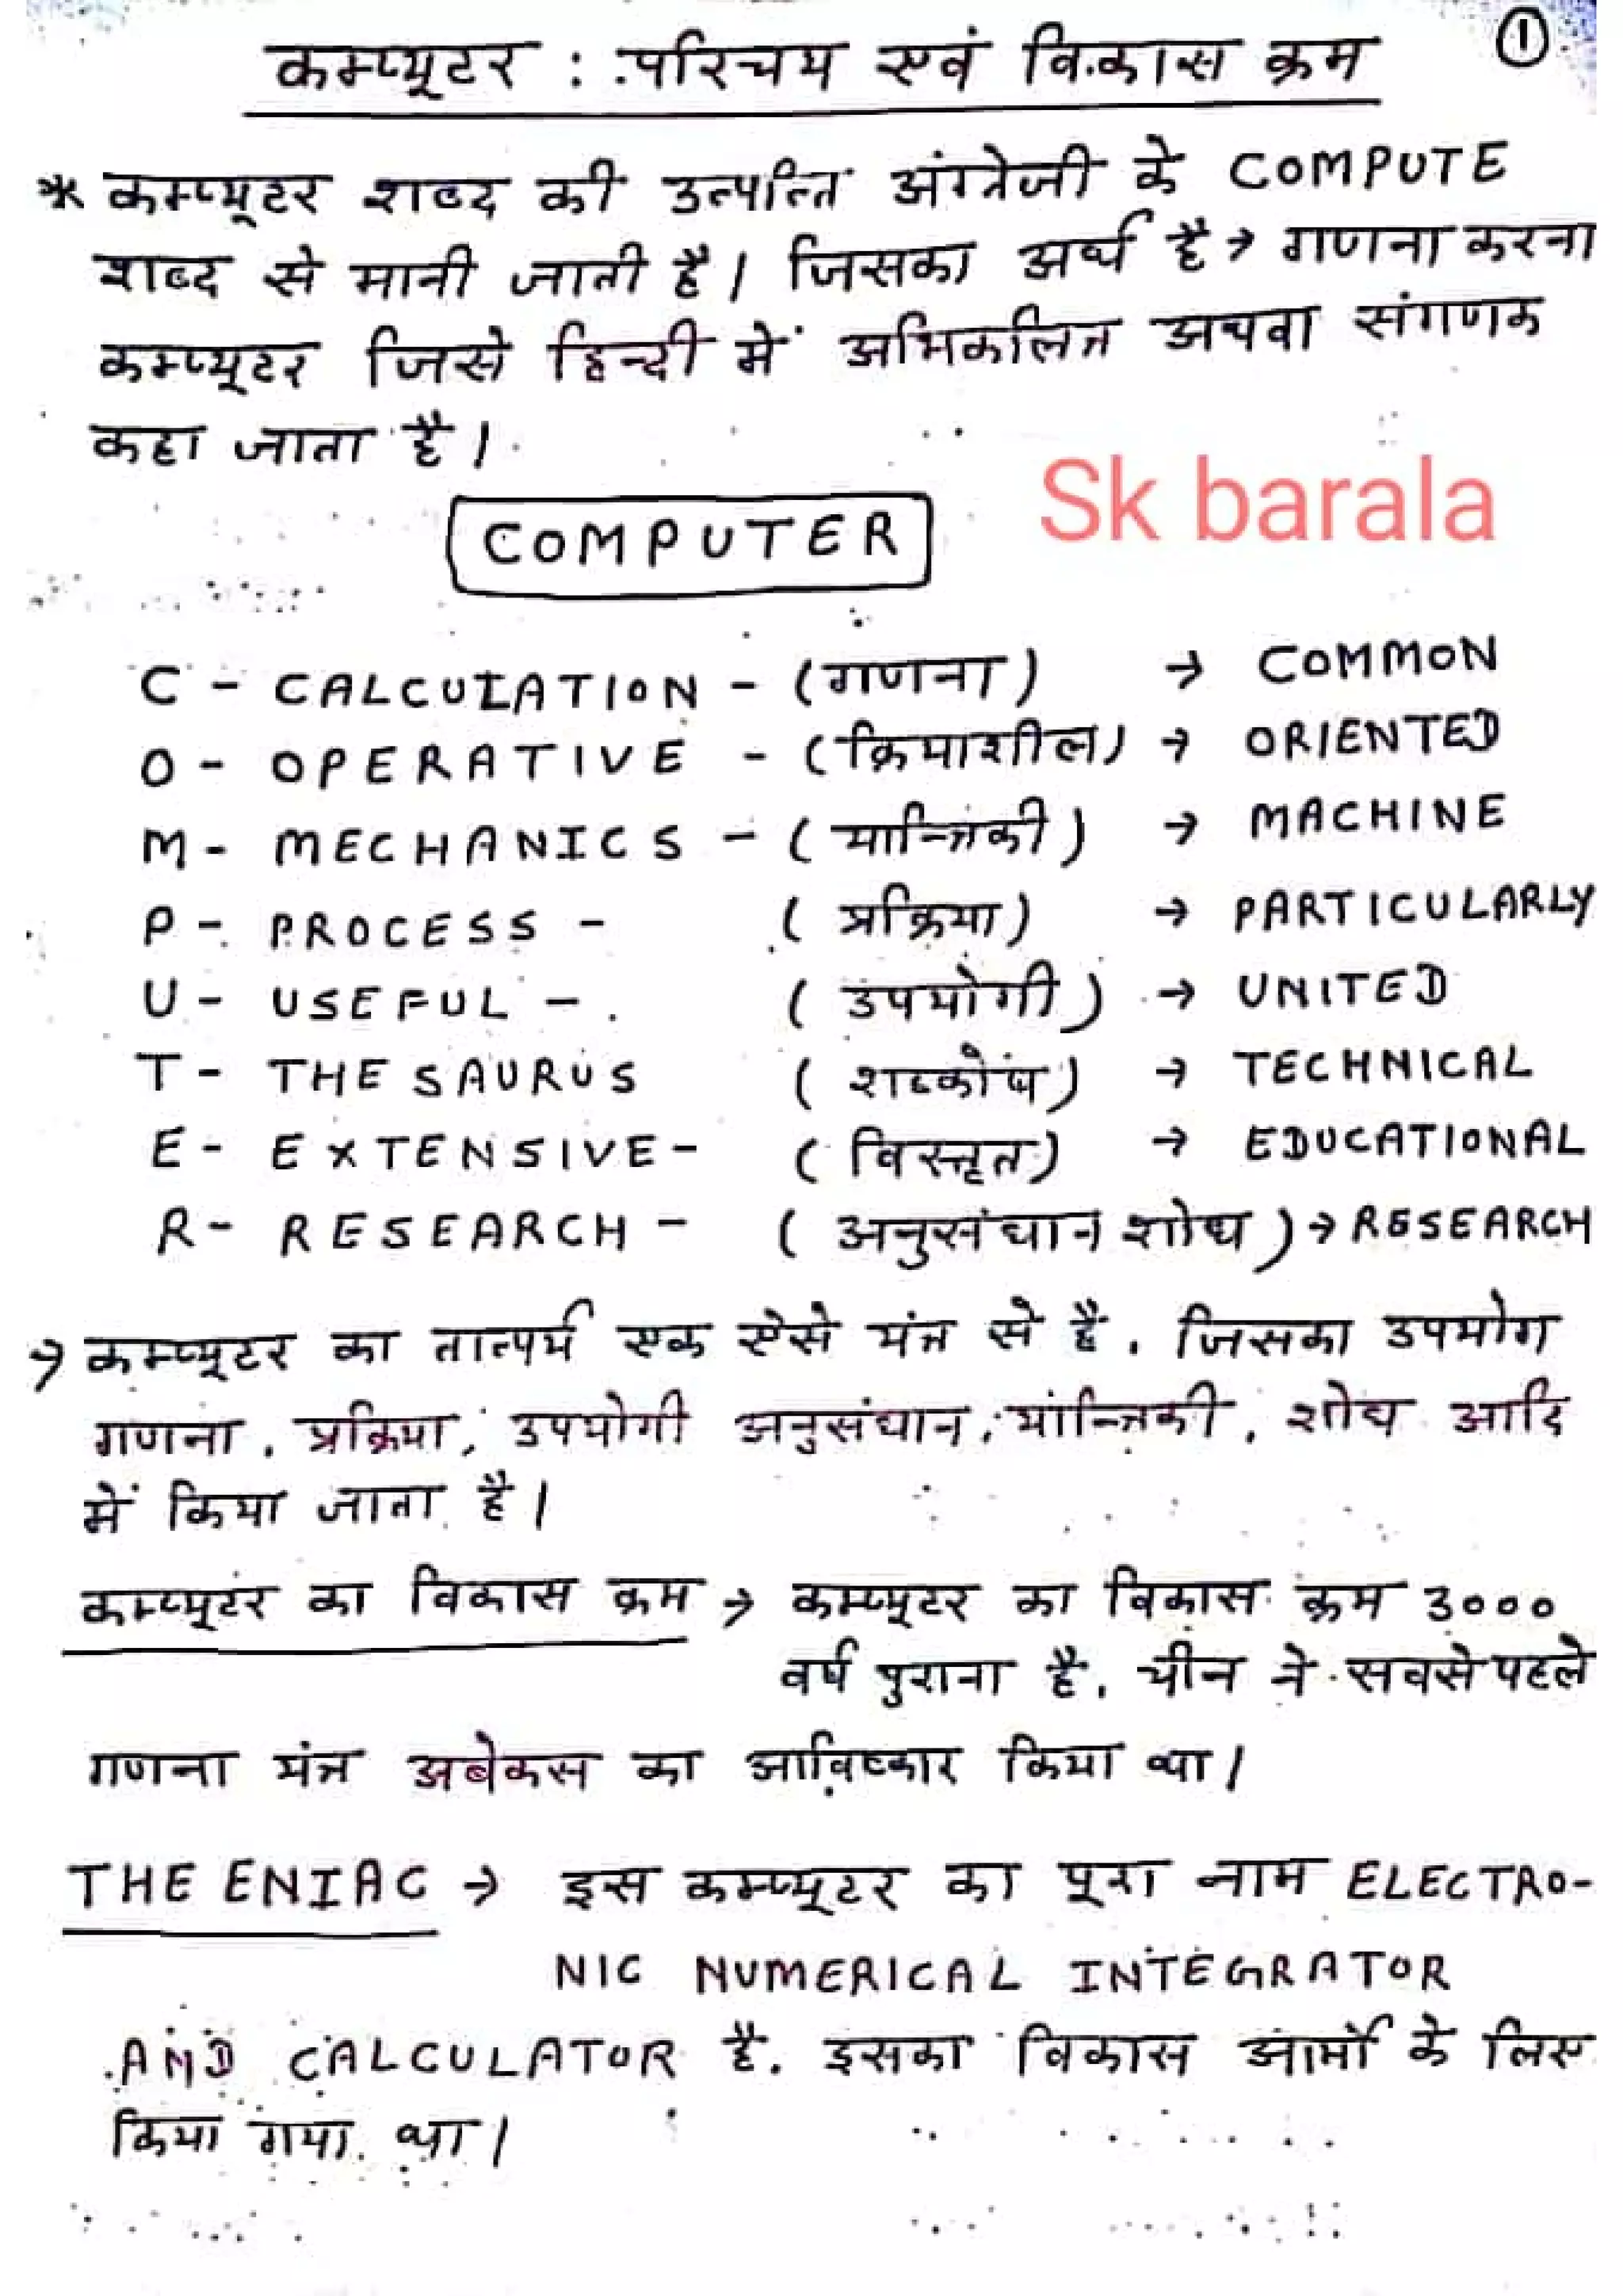 कम्प्यूटर : परिचय एवं विकास क्रम ①
* कम्प्यूटर शब्द की उत्पत्ति अंग्रेजी के COMPUTE
शब्द से मानी जाती है। जिसका अर्थ है → गणना करना
कम्प्यूटर जिसे हिन्दी में अभिकलित्र अथवा संगणक
कहा जाता है।
Sk barala
COMPUTER
C - CALCULATION - (गणना) → COMMON
O - OPERATIVE - (क्रियाशील) → ORIENTED
M - MECHANICS - (यान्त्रिकी) → MACHINE
P - PROCESS - (प्रक्रिया) → PARTICULARLY
U - USEFUL - (उपयोगी) → UNITED
T - THESAURUS (शब्कोष) → TECHNICAL
E - EXTENSIVE - (विस्तृत) → EDUCATIONAL
R - RESEARCH - (अनुसंधान शोध) → RESEARCH
→ कम्प्यूटर का तात्पर्य एक ऐसे यंत्र से है, जिसका उपयोग
गणना, प्रक्रिया, उपयोगी अनुसंधान, यांन्त्रिकी, शोध आदि
में किया जाता है।
कम्प्यूटर का विकास क्रम → कम्प्यूटर का विकास क्रम 3000
वर्ष पुराना है, चीन ने सबसे पहले
गणना यंत्र अबेकस का आविष्कार किया था।
THE ENIAC → इस कम्प्यूटर का पूरा नाम ELECTRO-
NIC NUMERICAL INTEGRATOR
AND CALCULATOR है. इसका विकास आर्मी के लिए
किया गया था।